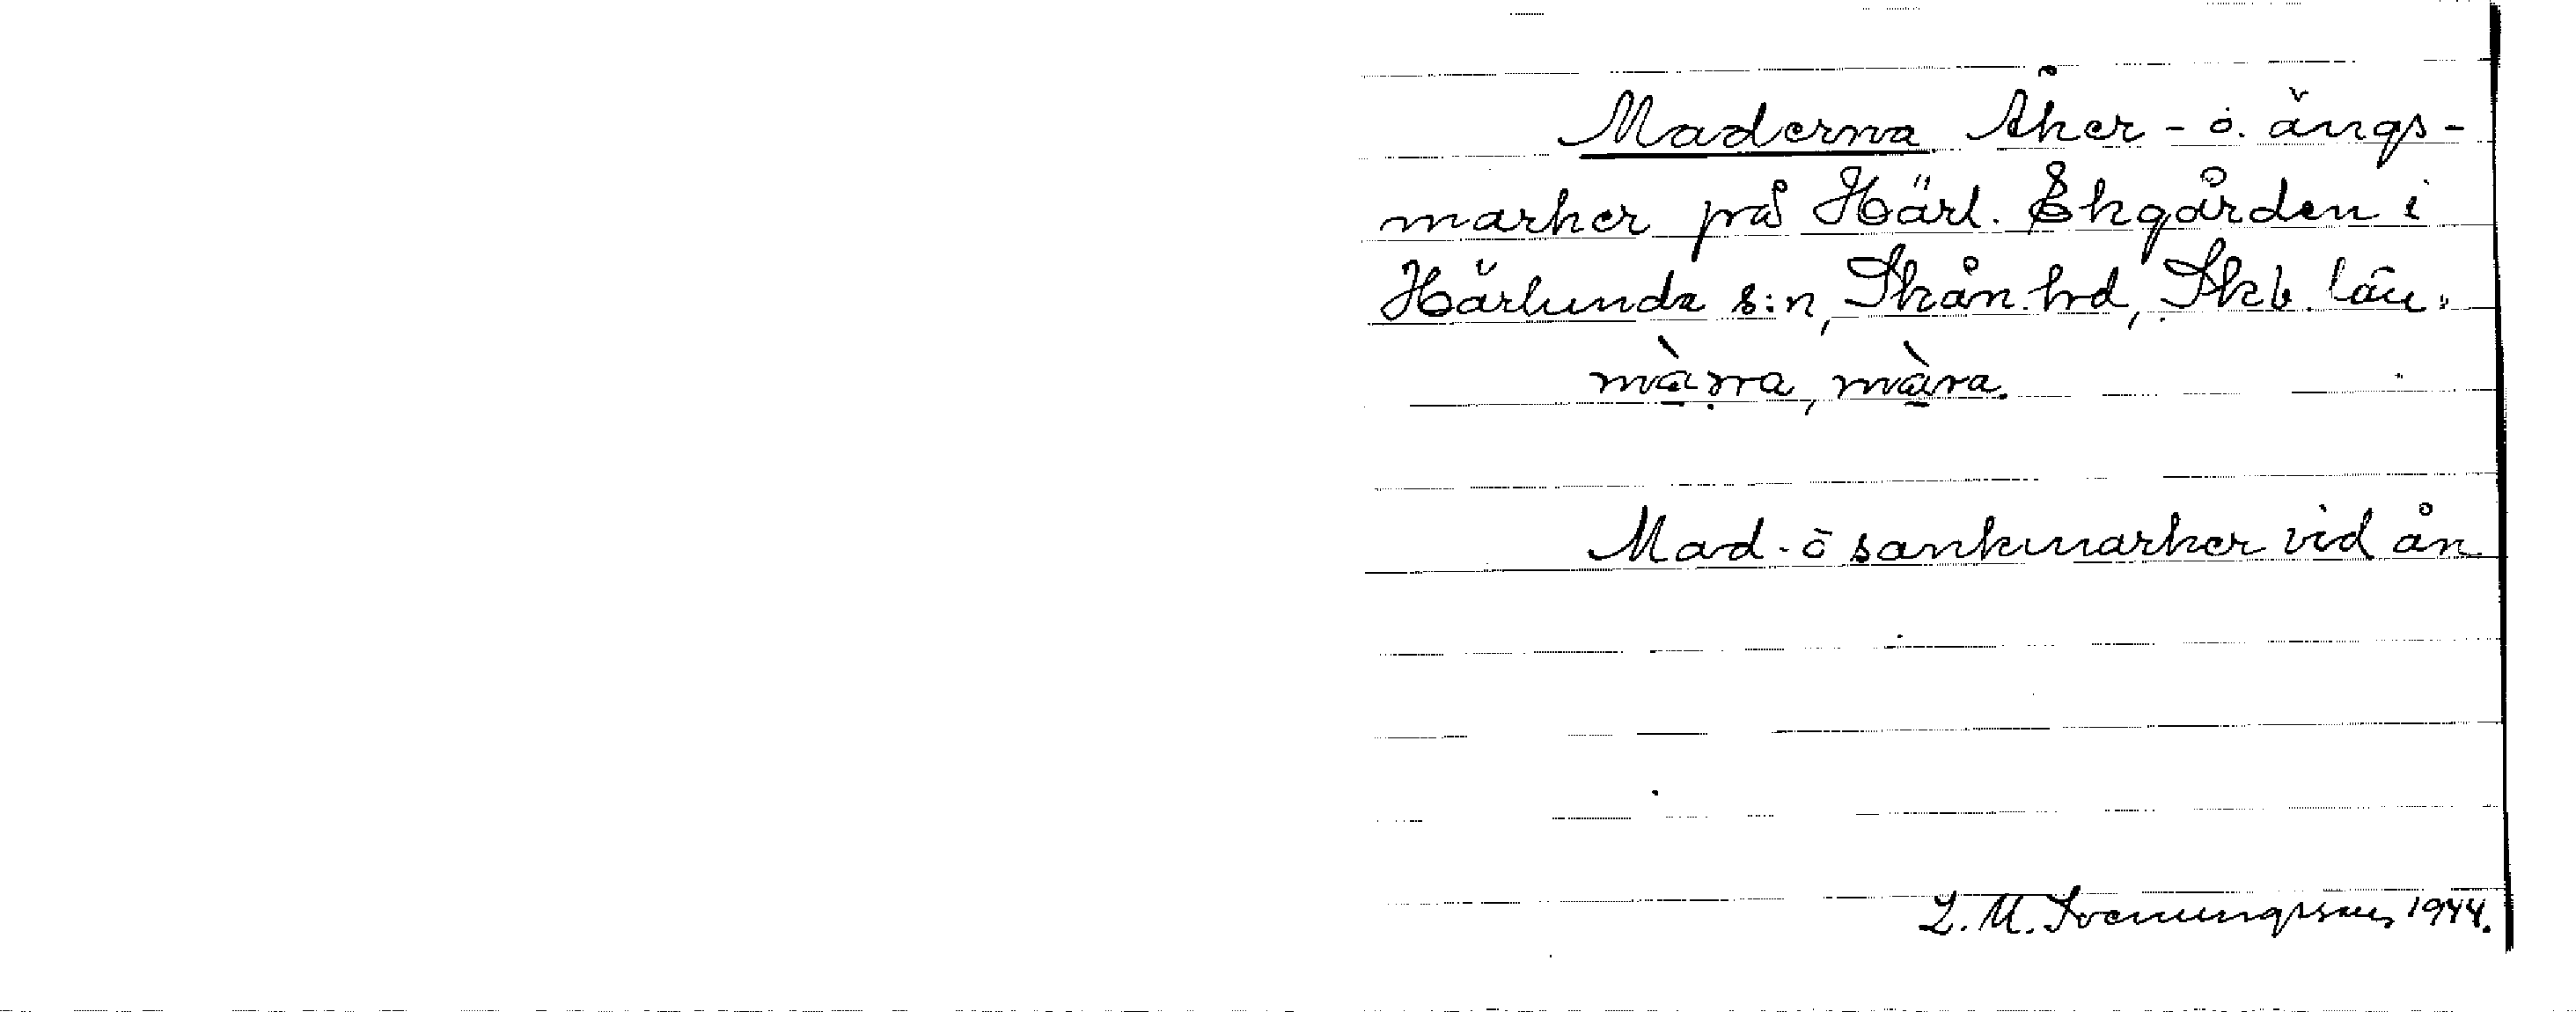 Maderna Åker- o. ängs-
marker på Härl. Ekgården i
Härlunda s:n, Skån. hd, Skb. län.
mà̱ṛra, mà̱ra.
Mad- o sankmarker vid ån
L. M. Svenungsson 1944.